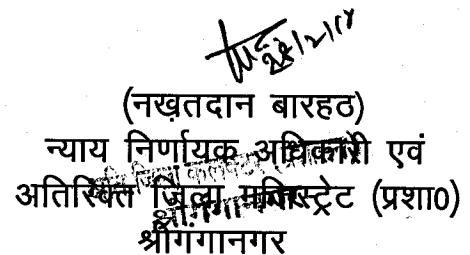 28/2/18
(नख़तदान बारहठ)
न्याय निर्णायक अधिकारी एवं
अतिरिक्त जिला मजिस्ट्रेट (प्रशा0)
श्रीगंगानगर